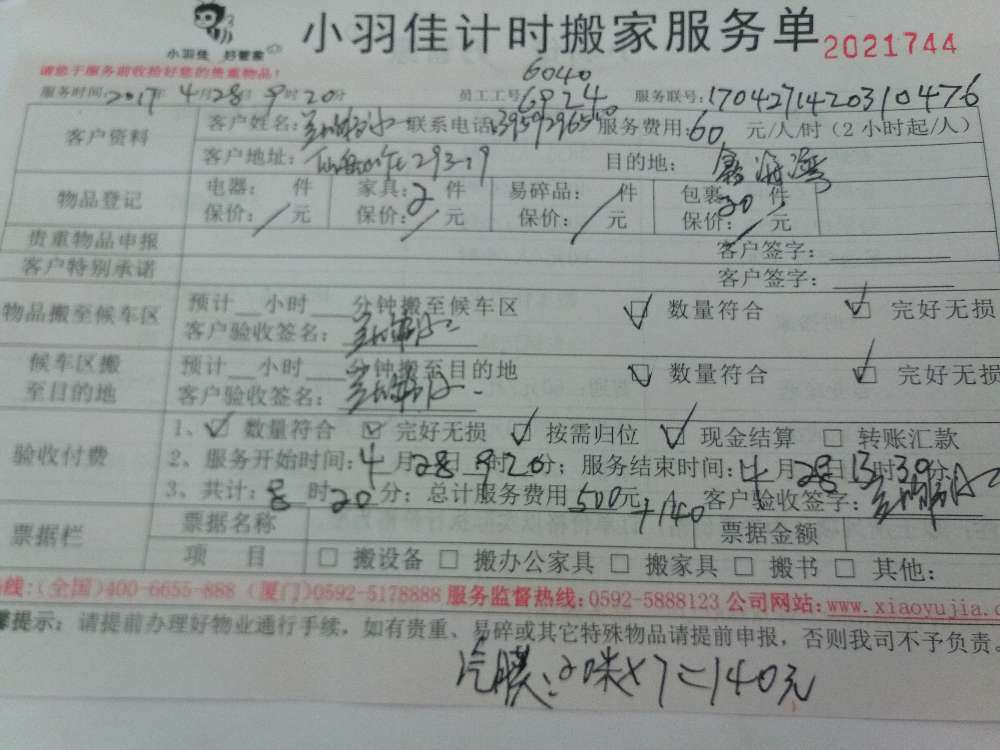 小羽佳 好管家
小羽佳计时搬家服务单 2021744
请您于服务前收拾好您的贵重物品!
6040
服务时间:2017年4月28日9时20分 员工工号:6924 服务联号:170427142031 0476
客户资料
客户姓名: 联系电话: 服务费用:60元/人/时(2小时起/人)
客户地址: 293-19 目的地:鑫海湾
物品登记
电器: 件 家具:2件 易碎品: 件 包裹:20件
保价:/元 保价:/元 保价:/元 保价:/元
贵重物品申报 客户签字:
客户特别承诺 客户签字:
物品搬至候车区
预计__小时__分钟搬至候车区 ☑ 数量符合 ☑ 完好无损
客户验收签名:
候车区搬至目的地
预计__小时__分钟搬至目的地 ☑ 数量符合 ☑ 完好无损
客户验收签名:
验收付费
1、☑ 数量符合 ☑ 完好无损 ☑ 按需归位 ☑ 现金结算 □ 转账汇款
2、服务开始时间:4月28日9时20分;服务结束时间:4月28日13时39分;
3、共计:8时20分;总计服务费用500元+140 客户验收签字:
票据栏
票据名称 票据金额
项 目 □ 搬设备 □ 搬办公家具 □ 搬家具 □ 搬书 □ 其他:
线:(全国)400-6655-888 (厦门)0592-5178888 服务监督热线:0592-5888123 公司网站:www.xiaoyujia.c
提示:请提前办理好物业通行手续,如有贵重、易碎或其它特殊物品请提前申报,否则我司不予负责。
汽膜:20米×7=140元